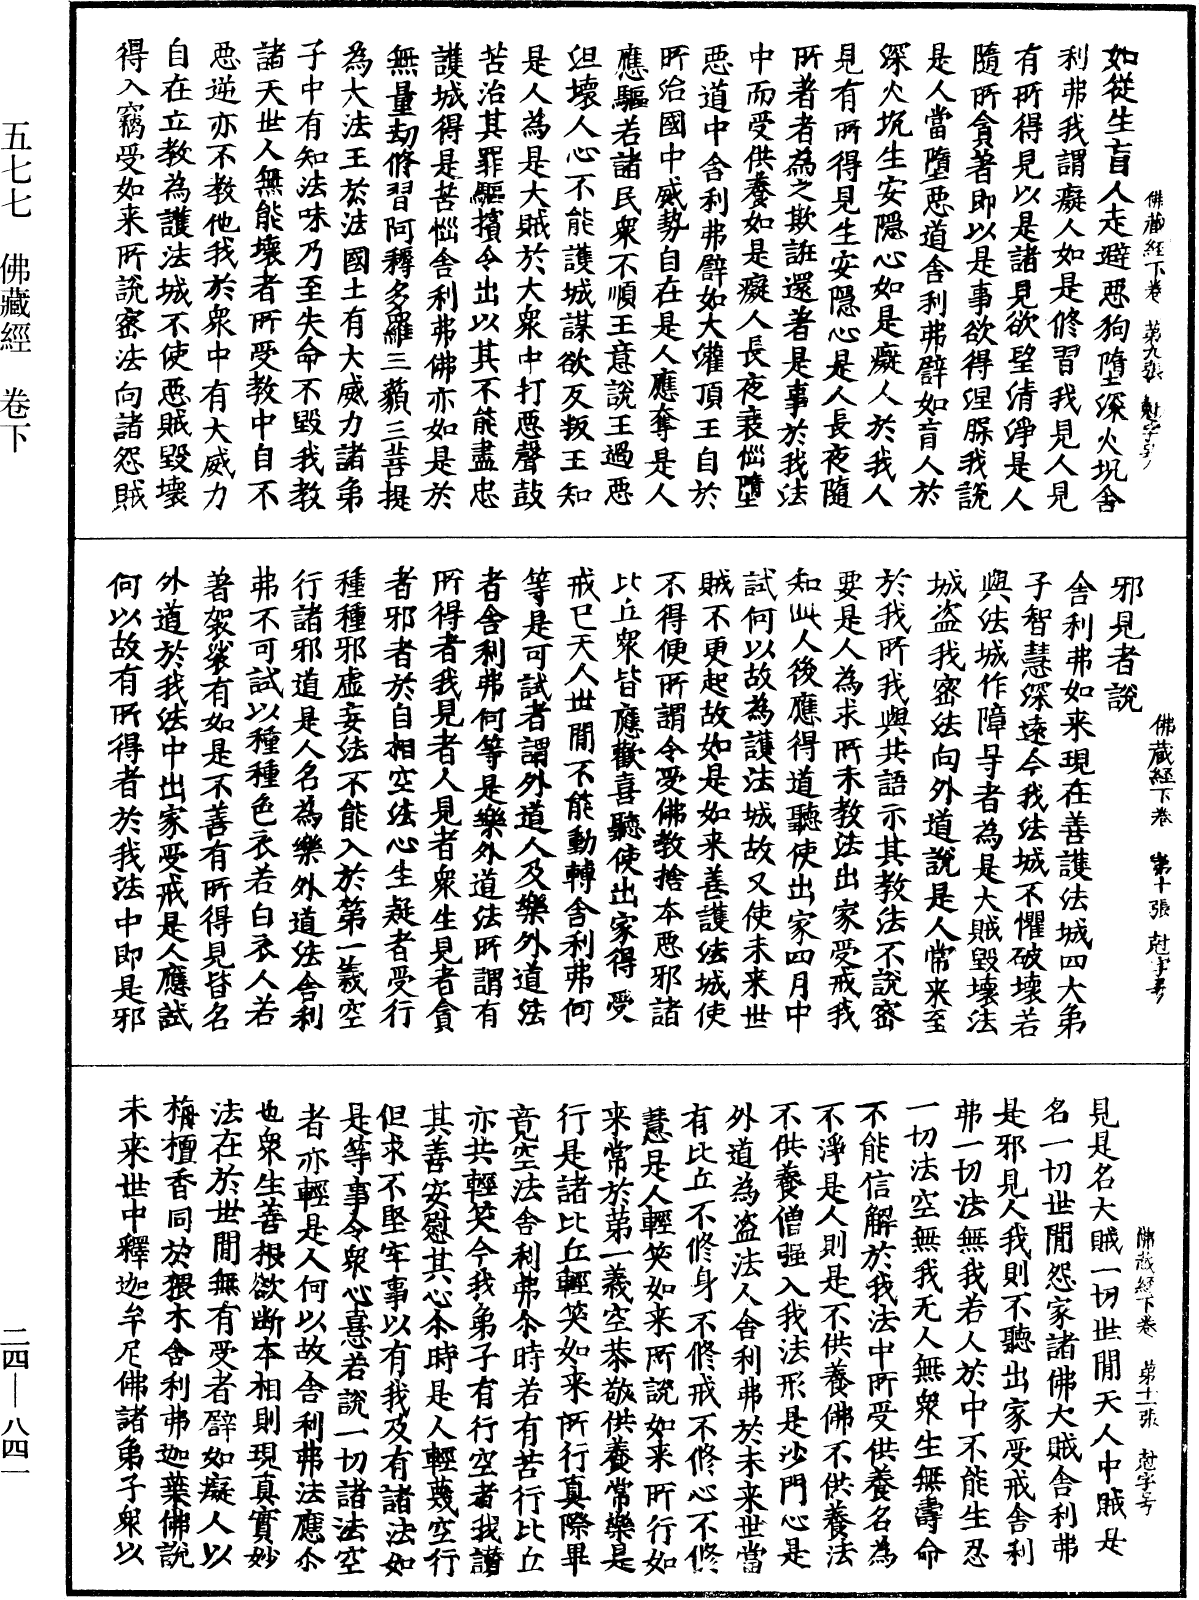 五七七　佛藏經　卷下
二四—八四一
佛藏經下卷　第九張
如從生盲人走避惡狗墮深火坑舍
利弗我謂癡人如是修習我見人見
有所得見以是諸見欲望清淨是人
隨所貪著即以是事欲得涅槃我說
是人當墮惡道舍利弗譬如盲人於
深火坑生安隱心如是癡人於我人
見有所得見生安隱心是人長夜隨
所著者為之欺誑還著是事於我法
中而受供養如是癡人長夜衰惱墮
惡道中舍利弗譬如大灌頂王自於
所治國中威勢自在是人應奪是人
應驅若諸民衆不順王意說王過惡
沮壞人心不能護城謀欲反叛王知
是人為是大賊於大衆中打惡聲鼓
苦治其罪驅擯令出以其不能盡忠
護城得是苦惱舍利弗佛亦如是於
無量劫修習阿耨多羅三藐三菩提
為大法王於法國土有大威力諸弟
子中有知法味乃至失命不毀我教
諸天世人無能壞者所受教中自不
惡逆亦不教他我於衆中有大威力
自在立教為護法城不使惡賊毀壞
得入竊受如来所說密法向諸怨賊
佛藏經下卷　第十張
邪見者說
舍利弗如来現在善護法城四大弟
子智慧深遠令我法城不懼破壞若
與法城作障㝵者為是大賊毀壞法
城盜我密法向外道說是人常来至
於我所我與共語示其教法不說密
要是人為求所未教法出家受戒我
知此人後應得道聽使出家四月中
試何以故為護法城故又使未来世
賊不更起故如是如来善護法城使
不得便所謂令受佛教捨本惡邪諸
比丘衆皆應歡喜聽使出家得受
戒已天人世間不能動轉舍利弗何
等是可試者謂外道人及樂外道法
者舍利弗何等是樂外道法所謂有
所得者我見者人見者衆生見者貪
者邪者於自相空法心生疑者受行
種種邪虛妄法不能入於第一義空
行諸邪道是人名為樂外道法舍利
弗不可試以種種色衣若白衣人若
著袈裟有如是不善有所得見皆名
外道於我法中出家受戒是人應試
何以故有所得者於我法中即是邪
佛藏經下卷　第十一張
見是名大賊一切世間天人中賊是
名一切世間怨家諸佛大賊舍利弗
是邪見人我則不聽出家受戒舍利
弗一切法無我若人於中不能生忍
一切法空無我无人無衆生無壽命
不能信解於我法中所受供養名為
不淨是人則是不供養佛不供養法
不供養僧强入我法形是沙門心是
外道為盜法人舍利弗於未来世當
有比丘不修身不修戒不修心不修
慧是人輕笑如来所說如来所行如
来常於第一義空恭敬供養常樂是
行是諸比丘輕笑如来所行真際畢
竟空法舍利弗尒時若有苦行比丘
亦共輕笑今我弟子有行空者我讃
其善安慰其心尒時是人輕蔑空行
但求不堅牢事以有我及有諸法如
是等事令衆心憙若說一切諸法空
者亦輕是人何以故舍利弗法應尒
也衆生善根欲断本相則現真實妙
法在於世間無有受者譬如癡人以
栴檀香同於猥木舍利弗迦葉佛說
未来世中釋迦牟尼佛諸弟子衆以